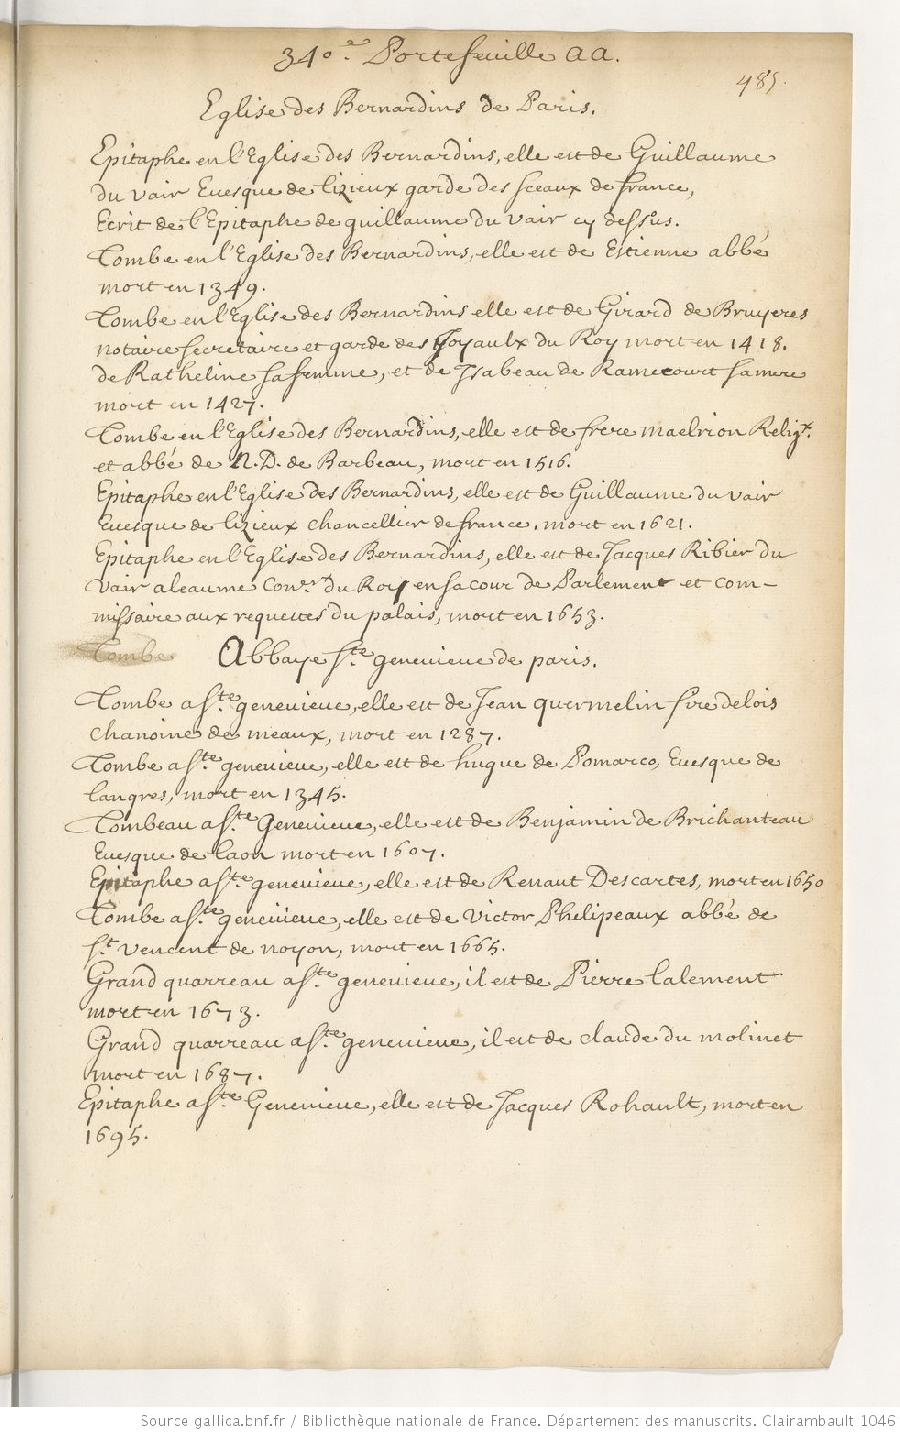 34o.e Portefeuille aa.
485.
Eglise des Bernardins de Paris.
Epitaphe en l'Eglise des Bernardins, elle est de Guillaume
du vair Euesque de lizieux garde des sceaux de france,
Ecrit de l'Epitaphe de guillaume du vair cy dessus.
Tombe en l'Eglise des Bernardins, elle est de Estienne abbé
mort en 1349.
Tombe en l'Eglise des Bernardins elle est de Girard de Bruyeres
notaire secretaire et garde des Joyaulx du Roy mort en 1418.
de Ratheline sa femme, et de Isabeau de Ramecourt sa mere
mort en 1427.
Tombe en l'Eglise des Bernardins, elle est de frere Relig.x
et abbé de N.D. de Barbeau, mort en 1516.
Epitaphe en l'Eglise des Bernardins, elle est de Guillaume du vair
Euesque de lizieux chancellier de france, mort en 1621.
Epitaphe en l'Eglise des Bernardins, elle est de Jacques Ribier du
vair aleaume Con.er du Roy en sa cour de Parlement et com-
missaire aux requettes du palais, mort en 1653.
Tombe Abbaye S.te genevieue de paris.
Tombe a S.te genevieue, elle est de Jean quermelin sire delois
chanoine de meaux, mort en 1287.
Tombe a S.te genevieue, elle est de hugue de Pomarco, Euesque de
langres, mort en 1345.
Tombeau a S.te Genevieue, elle est de Benjamin de Brichanteau
Euesque de laon mort en 1607.
Epitaphe a S.te genevieue, elle est de Renaut Descartes, mort en 1650
Tombe a S.te genevieue, elle est de Victor Phelipeaux abbé de
S.t vencent de noyon, mort en 1665.
Grand quarreau a S.te genevieue, il est de Pierre lalement
mort en 1673.
Grand quarreau a S.te genevieue, il est de claude du molinet
mort en 1687.
Epitaphe a S.te Genevieue, elle est de Jacques Rohault, mort en
1695.
Source gallica.bnf.fr / Bibliothèque nationale de France. Département des manuscrits. Clairambault 1046